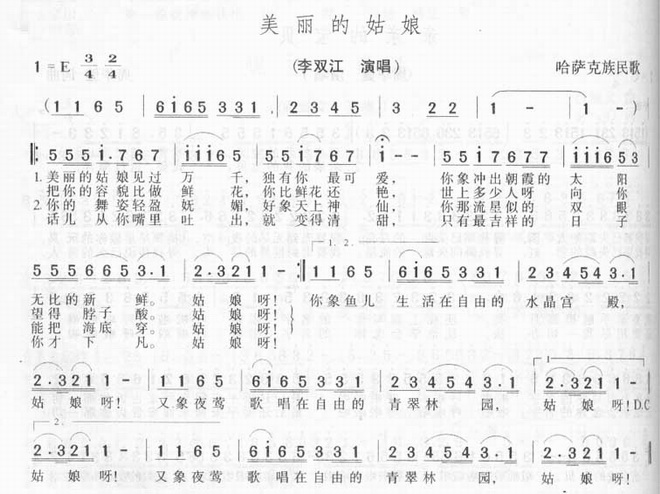 美丽的姑娘
1=E 3/4 2/4 （李双江 演唱） 哈萨克族民歌
(1 1 6 5 | 6 i 6 5 3 3 1 | 2 3 4 5 | 3 2 2 | 1 - | 1 - )
5 5 5 i. 7 6 7 | i i i 6 5 | 5 5 5 i. 7 6 7 | i - - | 5 5 5 i. 7 6 7 | i i i 6 5 3
1. 美丽的姑娘见过万千，独有你最可爱，你象冲出朝霞的太阳
把你的容貌比做鲜花，你比鲜花还艳，世上多少人呀向你
2. 你的舞姿轻盈妩媚，好象天上神仙，你那流星似的双眼
话儿从你嘴里吐出，就变得清甜，只有最吉祥的日子
1. 2.
5 5 5 6 6 5 3. 1 | 2. 3 2 1 1 - :| 1 1 6 5 | 6 i 6 5 3 3 1 | 2 3 4 5 4 3. 1
无比的新鲜。姑娘呀！你象鱼儿生活在自由的水晶宫殿，
望得脖子酸。姑娘呀！
能把海底穿。姑娘呀！
你才下凡。姑娘呀！
1.
2. 3 2 1 1 - | 1 1 6 5 | 6 i 6 5 3 3 1 | 2 3 4 5 4 3. 1 | 2. 3 2 1 1 -
姑娘呀！又象夜莺歌唱在自由的青翠林园，姑娘呀！D.C
2.
2. 3 2 1 1 - | 1 1 6 5 | 6 i 6 5 3 3 1 | 2 3 4 5 4 3. 1 | 2. 3 2 1 1 -
姑娘呀！又象夜莺歌唱在自由的青翠林园，姑娘呀！